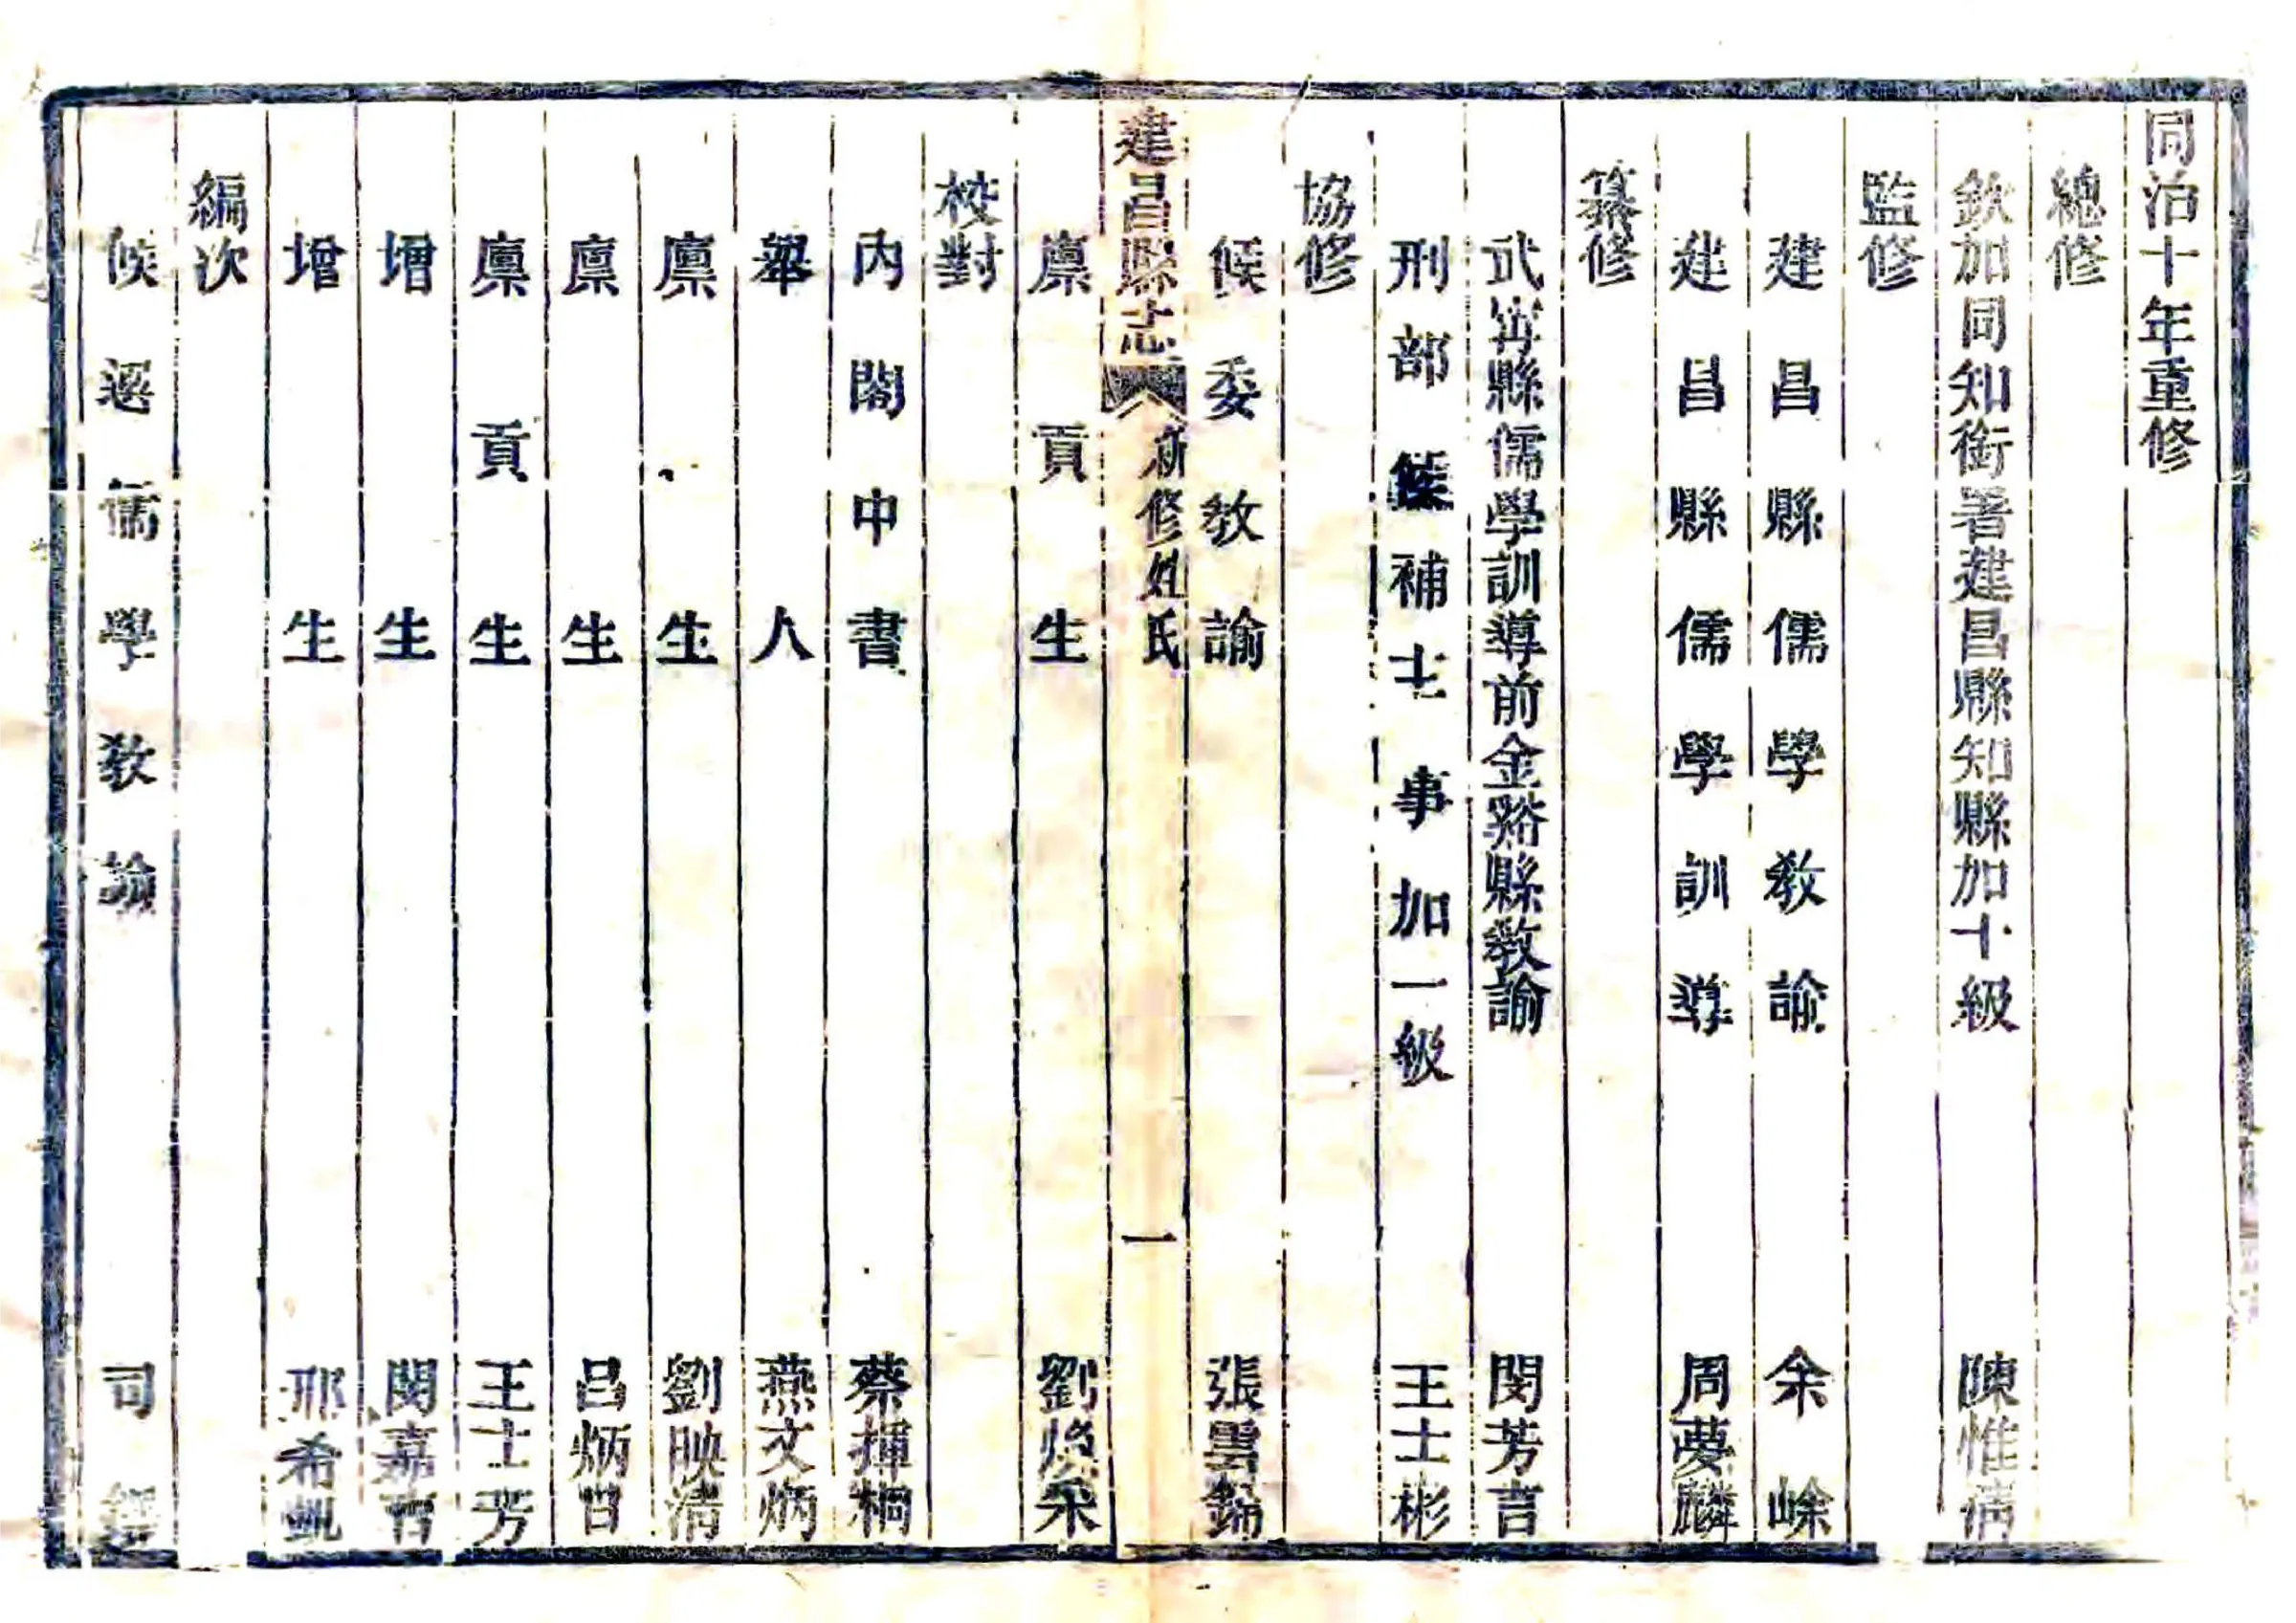 同治十年重修
總修
欽加同知銜署建昌縣知縣加十級 陳惟清
監修
建昌縣儒學教諭 余嵘
建昌縣儒學訓導 周夢麟
纂修
武甯縣儒學訓導前金谿縣教諭 閔芳言
刑部 補士 事加一級 王士彬
協修
候委教諭 張雲錦
建昌縣志 新修姓氏 一
廩貢生 劉 采
校對
內閣中書 蔡揮桐
舉人 燕文炳
廩生 劉映清
廪生 呂炳日
廩貢生 王士芳
增生 閔嘉
增生 邢希
編次
候選儒學教諭 司